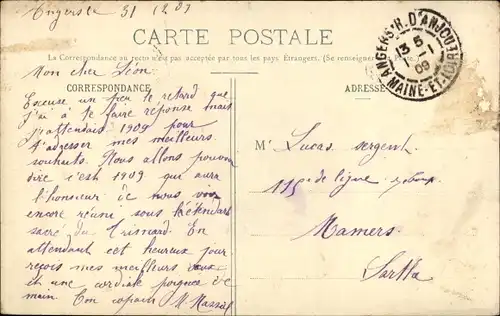 Angers le 31
CARTE POSTALE
La Correspondance au recto n'est pas acceptée par tous les pays Étrangers. (Se renseigner à la Poste.)
Mon cher Léon.
CORRESPONDANCE
ADRESSE
ANGERS-R. D'ANJOU
13 5
-1
09
MAINE-ET-LOIRE
Excuse un peu le retard que
j'ai à te faire réponse mais
j'attendais 1909 pour
t'adresser mes meilleurs
souhaits. Nous allons pouvoir
dire c'est 1909 qui aura
l'honneur de nous voir
encore réunis sous l'étendard
sacré du
attendant cet heureux jour
reçois mes meilleurs vœux
et une cordiale poignée de
main. Ton copain M. Massat
Mr Lucas sergent
115e de ligne
Mamers.
Sarthe